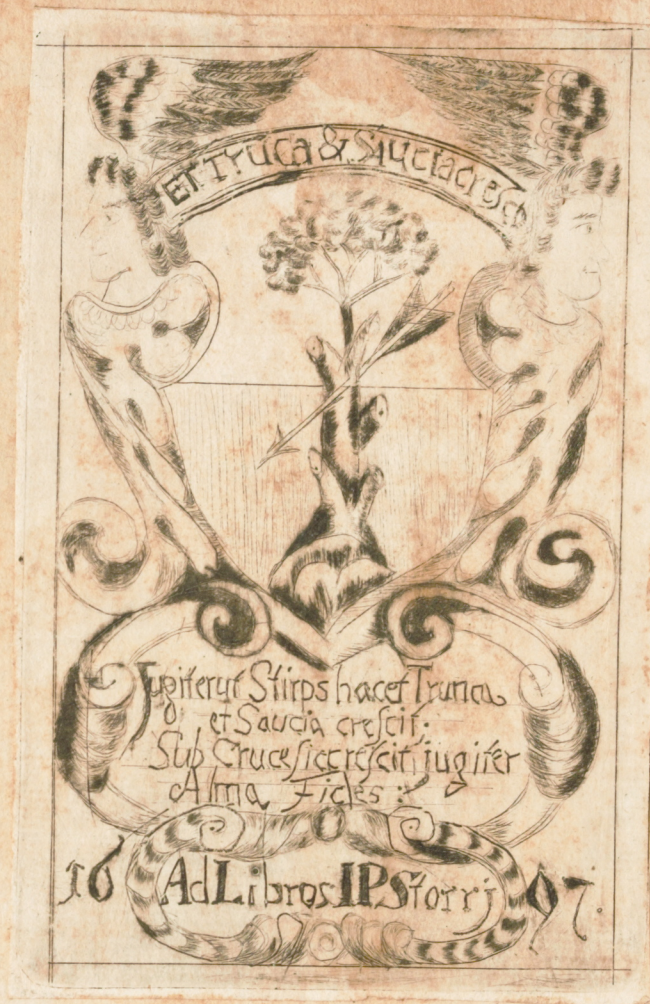 ET Truca & Siuciacresci
Jugiter ut Stirps hacet Trunca
et Saucia crescit.
Sub Cruce sic crescit, jugiter
Alma Fides:
16 Ad Libros IPStorrj 97.